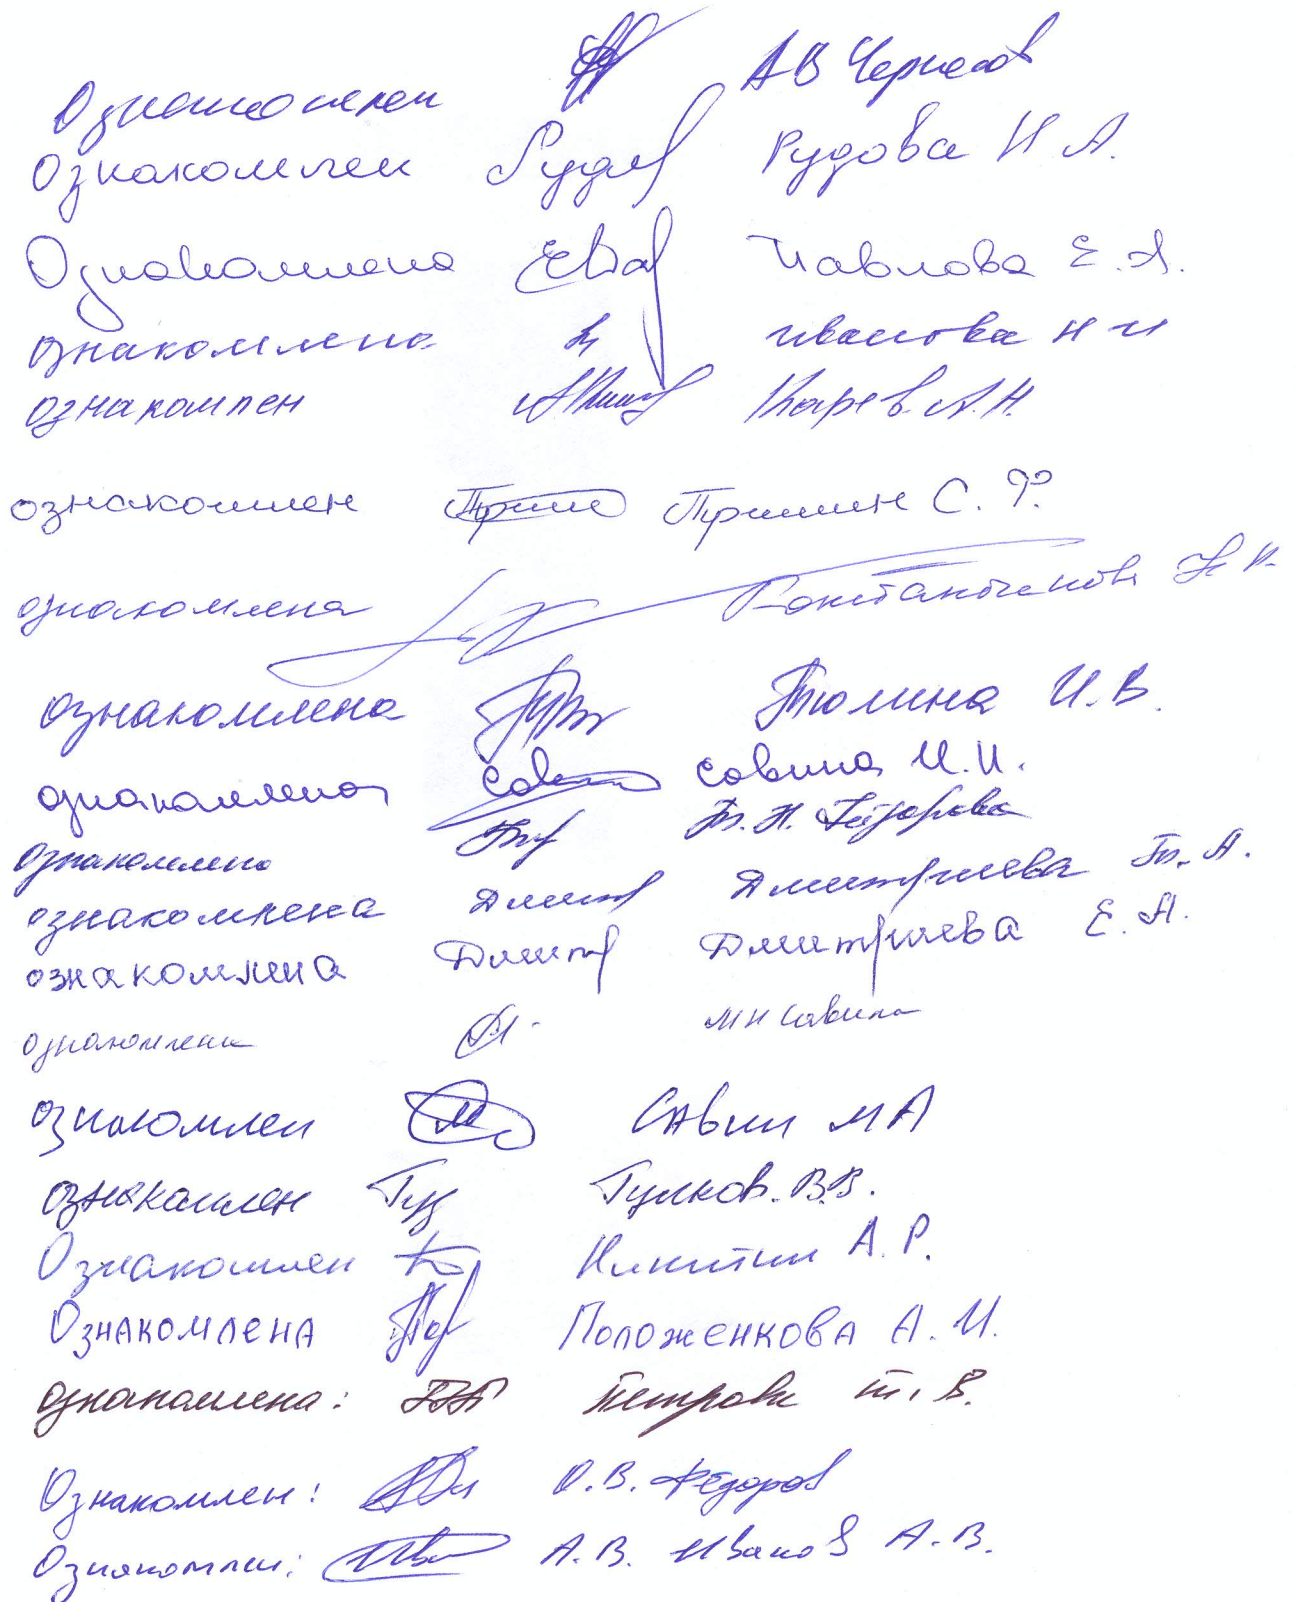 Ознакомлен А В Черпесов
Ознакомлен Рудова Н А.
Ознакомлена Павлова Е. А.
ознакомлена Иванова Н И
ознакомлен Карев. А. Н.
ознакомлен С. Ф.
ознакомлена
ознакомлена Тюлина И. В.
ознакомлена Сав Савина И. И.
ознакомлена Т. Н.
ознакомлена Дмит Дмитриева Т. А.
ознакомлена Дмитр Дмитриева Е. А.
ознакомлена М Н Савина
ознакомлен М Савин М А
ознакомлен Гул Гулков. В. В.
Ознакомлен Никитин А. Р.
Ознакомлена Положенкова А. И.
ознакомлена: Петрова Т. В.
Ознакомлен: О. В. Фёдоров
Ознакомлен: Ив А. В. Иванов А. В.